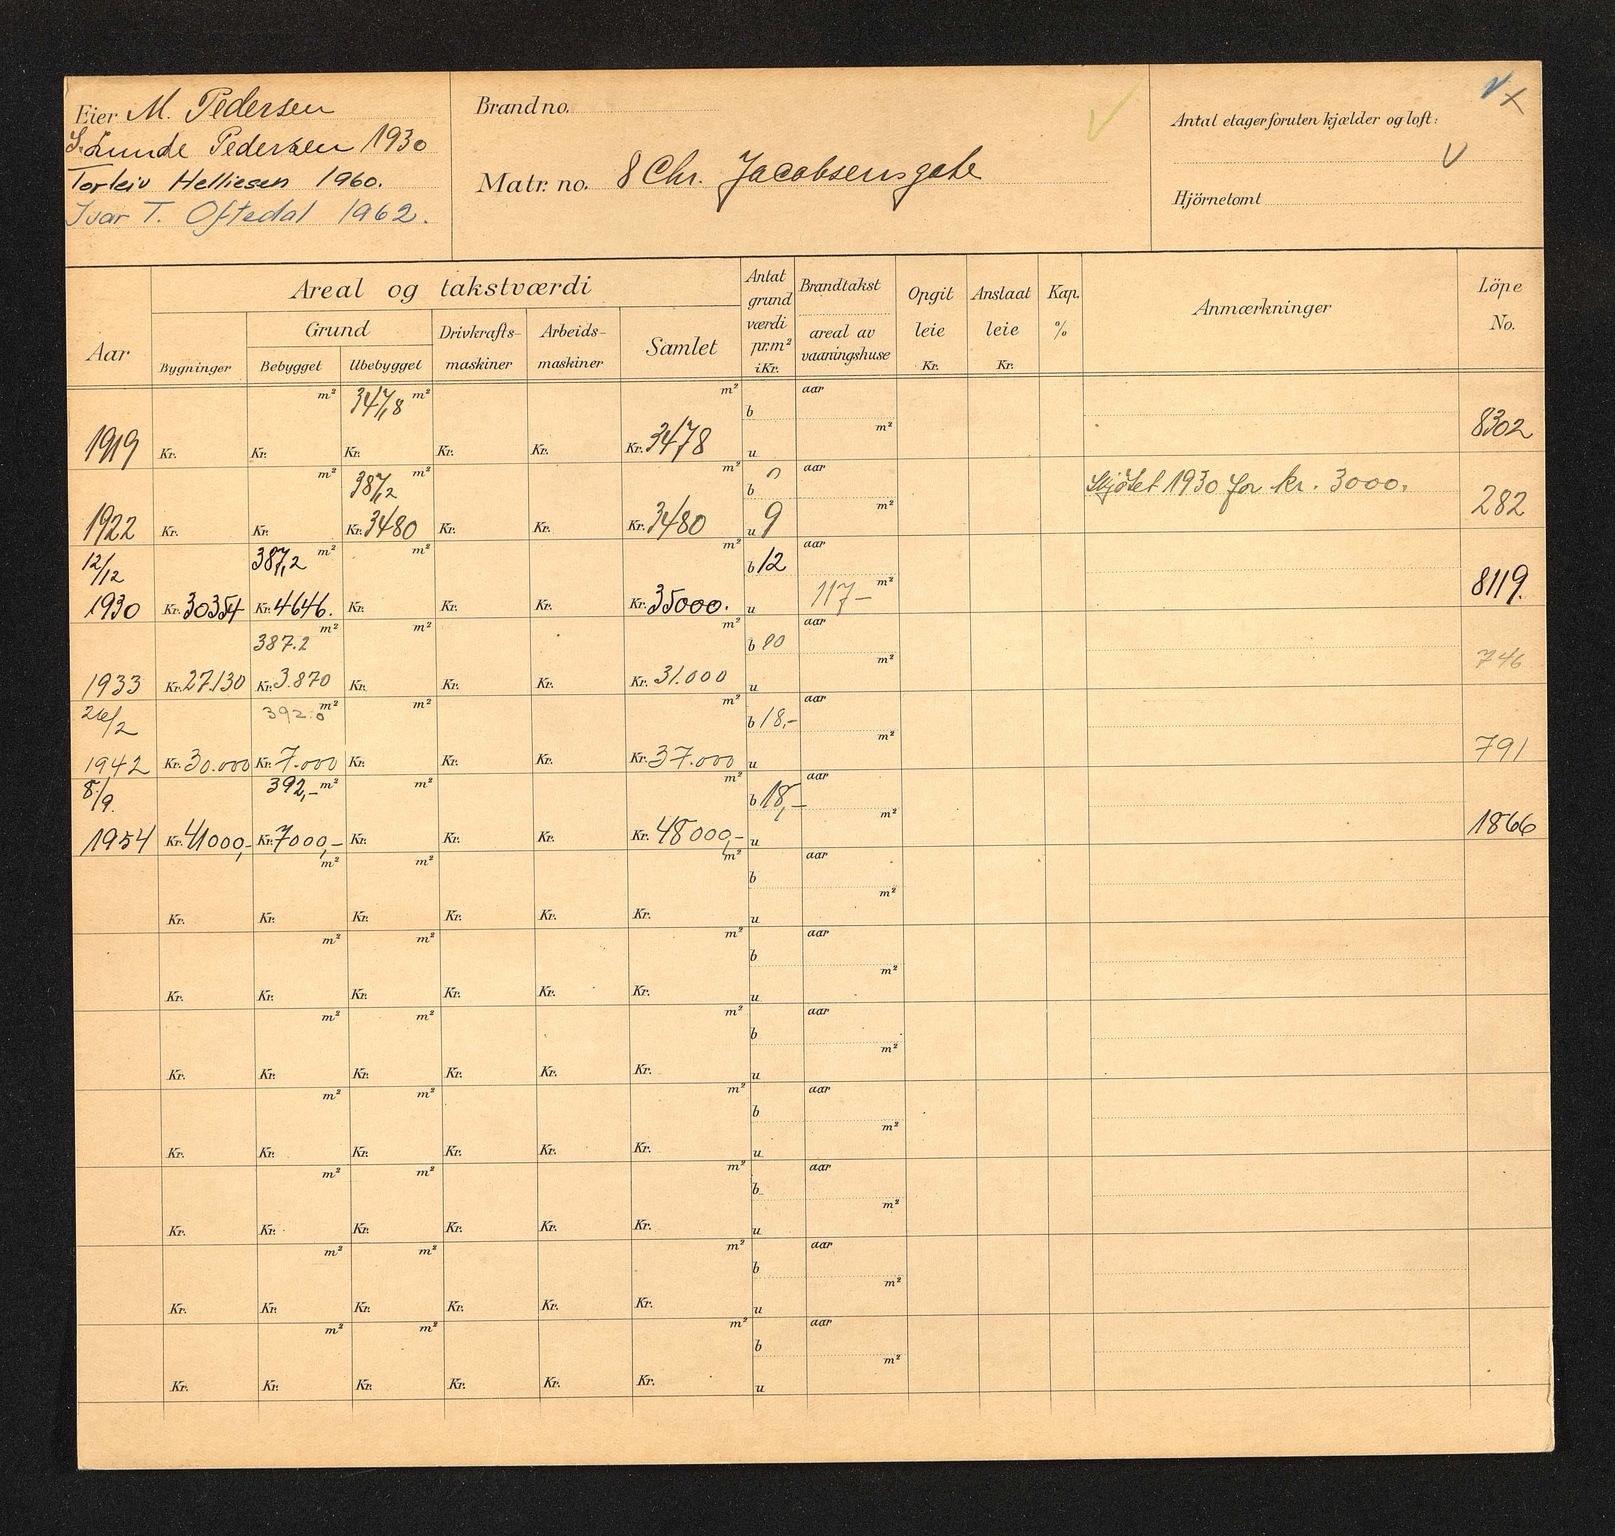 Eier M. Pedersen
S. Lunde Pedersen 1930
Torleiv Helliesen 1960.
Ivar T. Oftedal 1962.
Brand no.
Matr. no. 8 Chr. Jacobsensgate
Antal etager foruten kjælder og loft:
Hjörnetomt
Aar
Areal og takstværdi
Grund
Bygninger
Bebygget
Ubebygget
Drivkrafts-
maskiner
Arbeids-
maskiner
Samlet
Antat
grund
værdi
pr.m²
i Kr.
Brandtakst
areal av
vaaningshuse
Opgit
leie
Kr.
Anslaat
leie
Kr.
Kap.
%
Anmærkninger
Löpe
No.
m² 347,8 m² m² b aar
1919 Kr. Kr. Kr. Kr. Kr. Kr. 3478 u m² 8302
m² 387,2 m² m² b aar Skjøtet 1930 for kr. 3000.
1922 Kr. Kr. Kr. 3480 Kr. Kr. Kr. 3480 u 9 m² 282
12/12 387,2 m² m² m² b 12 aar
1930 Kr. 30354 Kr. 4646. Kr. Kr. Kr. Kr. 35000. u 117- m² 8119.
387.2 m² m² m² b aar
1933 Kr. 27.130 Kr. 3.870 Kr. Kr. Kr. Kr. 31.000 u m² 746
26/2 392.0 m² m² m² b 18,- aar
1942 Kr. 30.000 Kr. 7.000 Kr. Kr. Kr. Kr. 37.000 u m² 791
8/9. 392,- m² m² m² b 18,- aar
1954 Kr. 41000,- Kr. 7000,- Kr. Kr. Kr. Kr. 48000,- u m² 1866
m² m² m² b aar
Kr. Kr. Kr. Kr. Kr. Kr. u m²
m² m² m² b aar
Kr. Kr. Kr. Kr. Kr. Kr. u m²
m² m² m² b aar
Kr. Kr. Kr. Kr. Kr. Kr. u m²
m² m² m² b aar
Kr. Kr. Kr. Kr. Kr. Kr. u m²
m² m² m² b aar
Kr. Kr. Kr. Kr. Kr. Kr. u m²
m² m² m² b aar
Kr. Kr. Kr. Kr. Kr. Kr. u m²
m² m² m² b aar
Kr. Kr. Kr. Kr. Kr. Kr. u m²